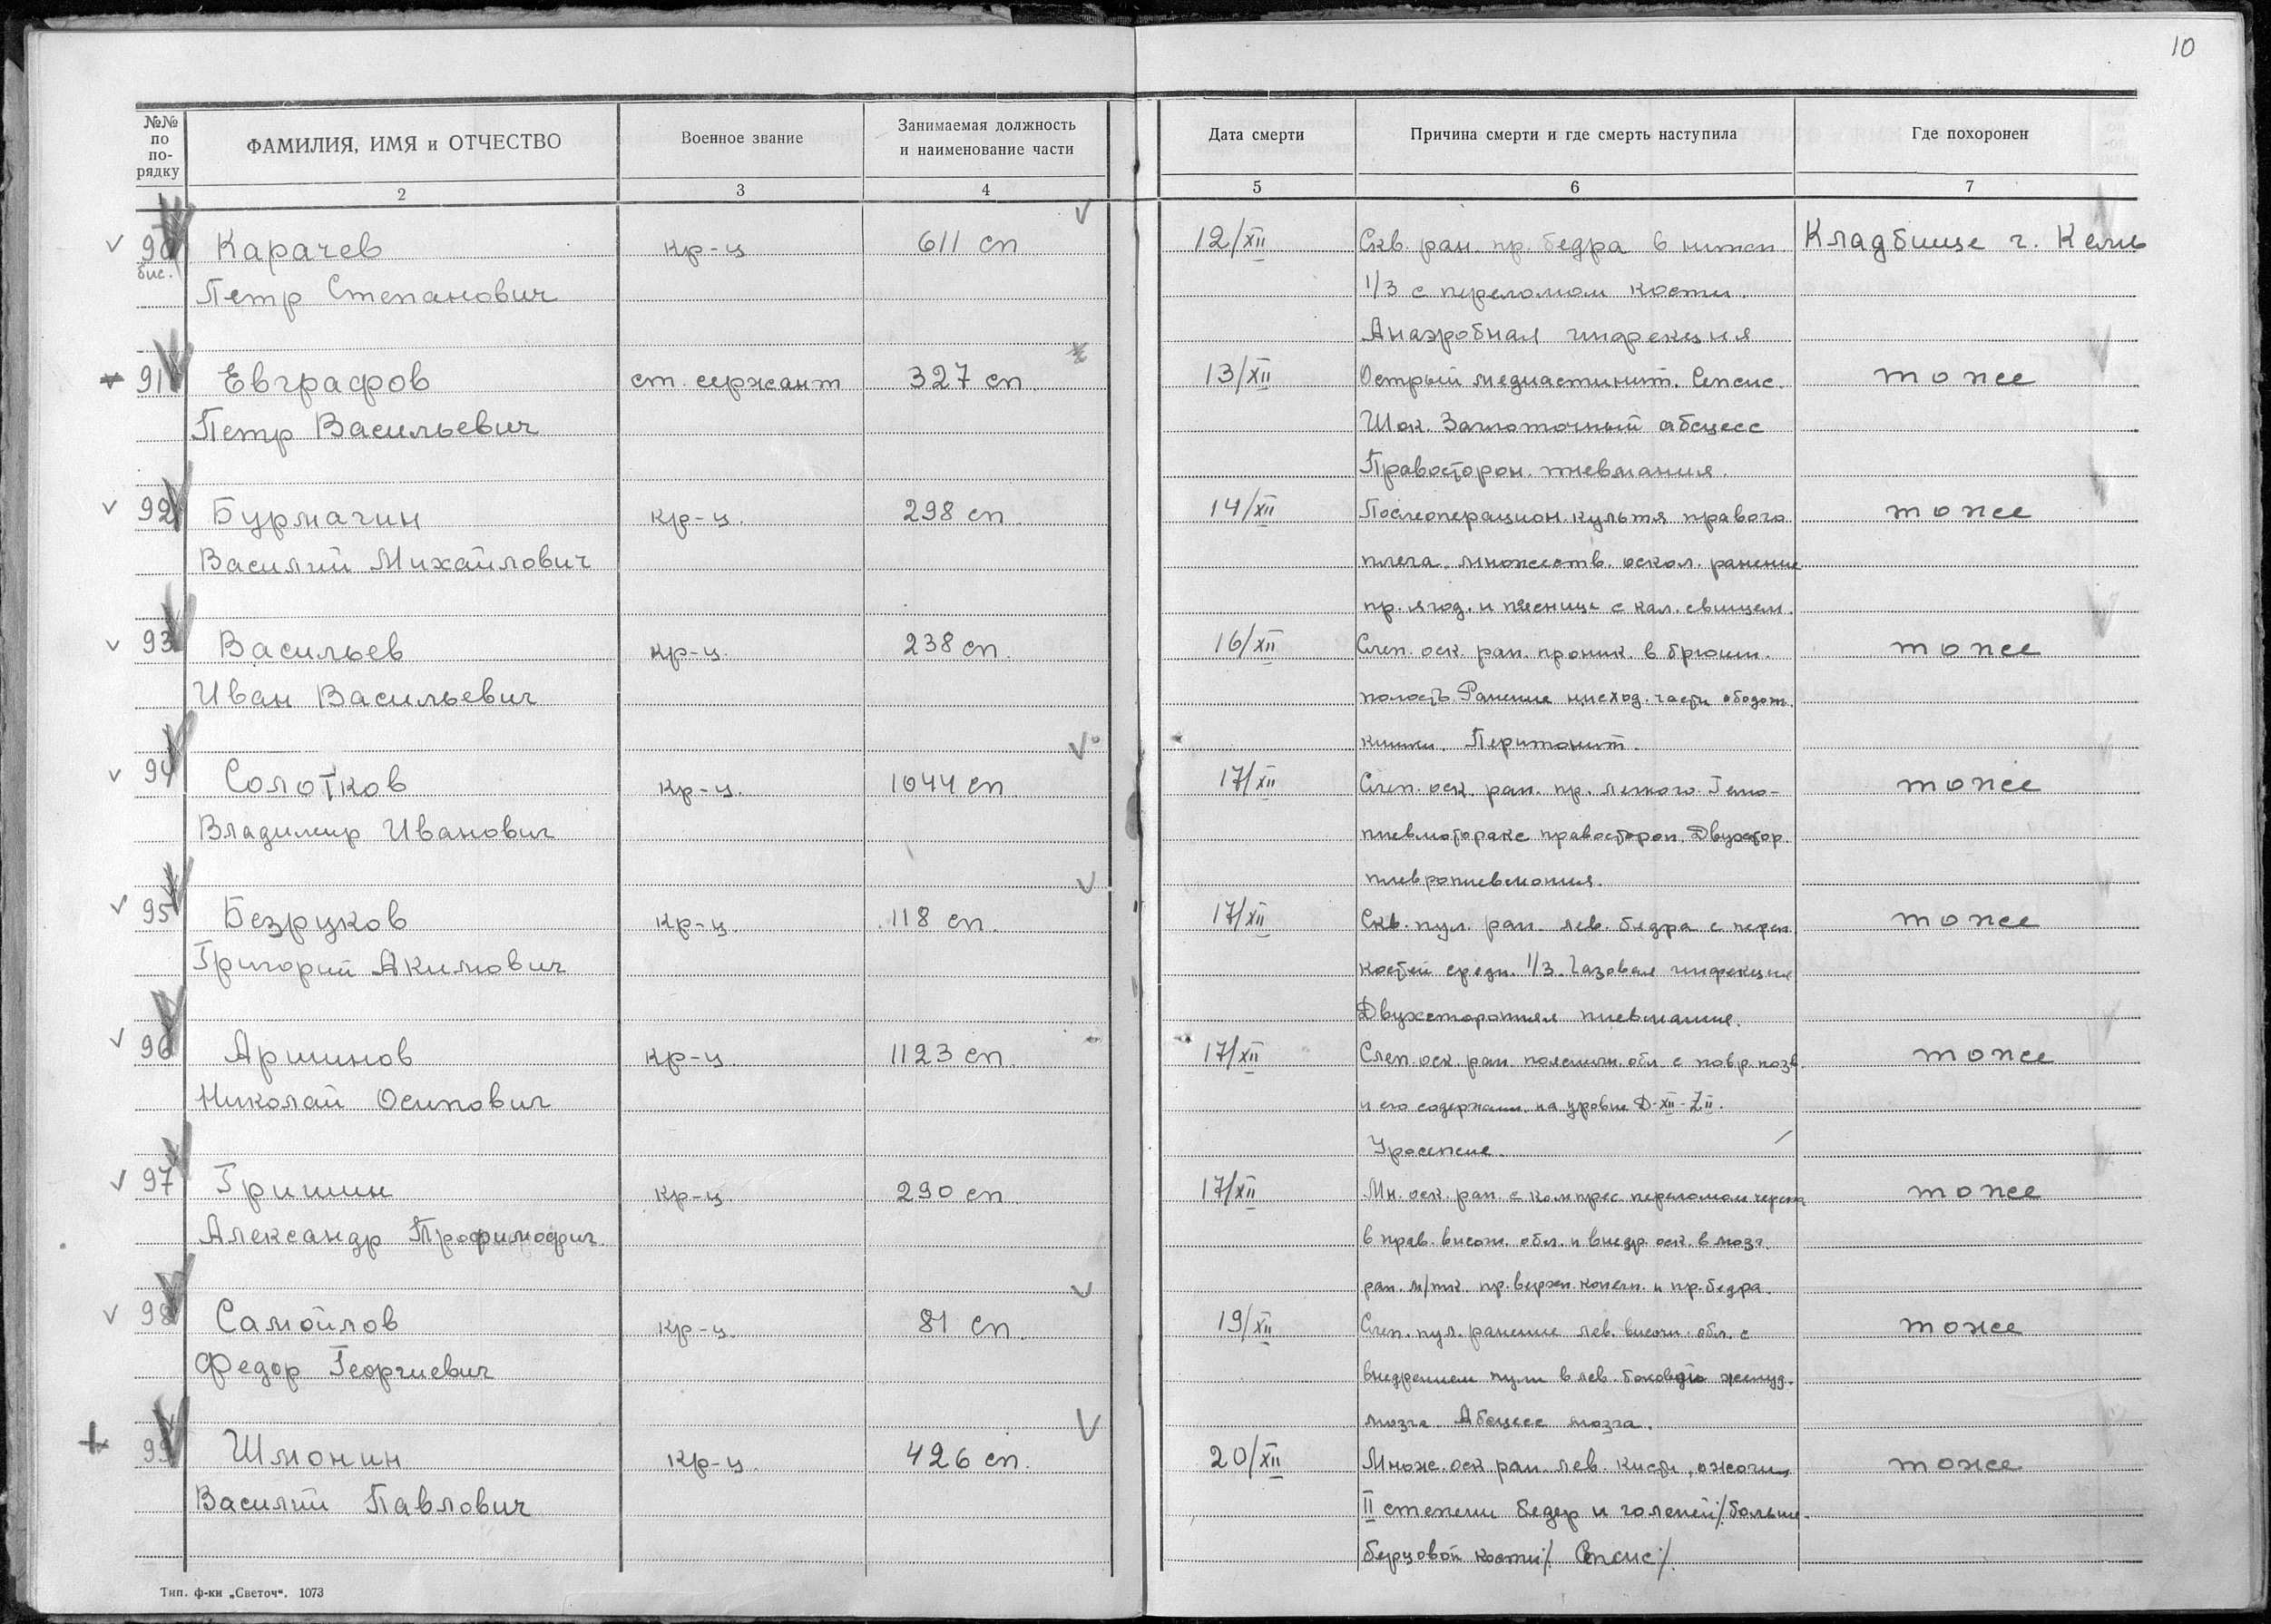 10
№№ по по-рядку
ФАМИЛИЯ, ИМЯ и ОТЧЕСТВО
Военное звание
Занимаемая должность и наименование части
Дата смерти
Причина смерти и где смерть наступила
Где похоронен
1 2 3 4 5 6 7
90 Карачев кр-ц 611 сп 12/XII Скв. ран. пр. бедра в нижн. Кладбище г. Кемь
бис. Петр Степанович 1/3 с переломом кости.
Анаэробная инфекция
91 Евграфов ст. сержант 327 сп 13/XII Острый медиастинит. Сепсис. тоже
Петр Васильевич Шок. Заглоточный абсцесс
Правосторон. пневмания.
92 Бурмагин кр-ц. 298 сп. 14/XII Послеоперацион. культя правого тоже
Василий Михайлович плеча. множеств. оскол. ранение
пр. ягод. и п-ясницы с кал. свищем.
93 Васильев кр-ц. 238 сп. 16/XII Слеп. оск. ран. проник. в брюшн. тоже
Иван Васильевич полость. Ранение нисход. части ободоч.
кишки. Перитонит.
94 Солотков кр-ц. 1044 сп 17/XII Слеп. оск. ран. пр. легкого. Гемо-
тоже
Владимир Иванович пневмоторакс правосторон. Двухстор.
плевропневмония.
95 Безруков кр-ц. 118 сп. 17/XII Скв. пул. ран. лев. бедра с перел. тоже
Григорий Акимович костей средн. 1/3. Газовая инфекция
Двухсторонняя пневмания.
96 Аршинов кр-ц. 1123 сп. 17/XII Слеп. оск. ран. поясничн. обл. с повр. позв. тоже
Николай Осипович и его содержим. на уровне Д-XII-ZII.
Уросепсис.
97 Гришин кр-ц. 290 сп. 17/XII Мн. оск. ран. с компрес. переломом черепа тоже
Александр Трофимофич. в прав. височ. обл. и внедр. оск. в мозг.
ран. м/тк. пр. верхн. конечн. и пр. бедра.
98 Самойлов кр-ц. 81 сп. 19/XII Слеп. пул. ранение лев. височн. обл. с тоже
Федор Георгиевич внедрением пули в лев. боковой желуд.
мозга. Абсцесс мозга.
99 Шмонин кр-ц. 426 сп. 20/XII Множ. оск. ран. лев. кисти, ожоги тоже
Василий Павлович II степени бедер и голеней/. больше-
берцовой кости/. Сепсис/.
Тип. ф-ки „Светоч“. 1073